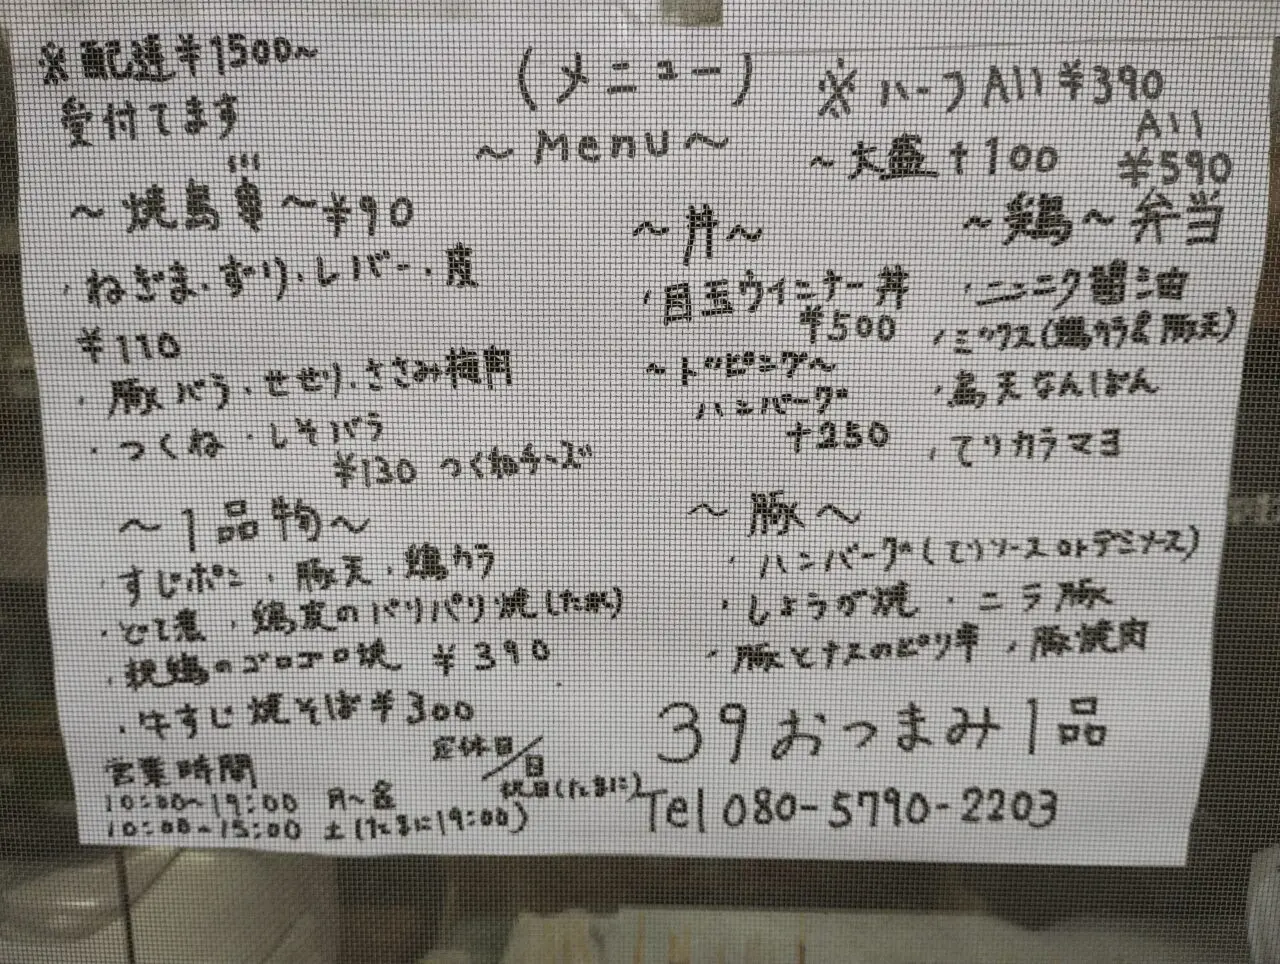 ※配達¥1500~
受付てます
(メニュー)
~Menu~
※ハーフAll¥390
~大盛+100
All
¥590
~焼鳥~¥90
・ねぎま・ずり・レバー・皮
¥110
・豚バラ・せせり・ささみ梅肉
・つくね・しそバラ
¥130 つくねチーズ
~1品物~
・すじポン・豚天・鶏カラ
・どて煮・鶏皮のパリパリ焼(たれ)
・親鶏のゴロゴロ焼 ¥390
・牛すじ焼そば¥300
営業時間
10:00~19:00 月~金
10:00~15:00 土(たまに19:00)
定休日/日
祝日(たまに)
~丼~
・目玉ウインナー丼
¥500
~トッピング~
ハンバーグ
+250
~鶏~弁当
・ニンニク醤油
・ミックス(鶏カラ&豚天)
・鳥天なんばん
・てりカラマヨ
~豚~
・ハンバーグ(てりソースorデミソース)
・しょうが焼・ニラ豚
・豚とナスのピリ辛・豚焼肉
39おつまみ1品
Tel 080-5790-2203